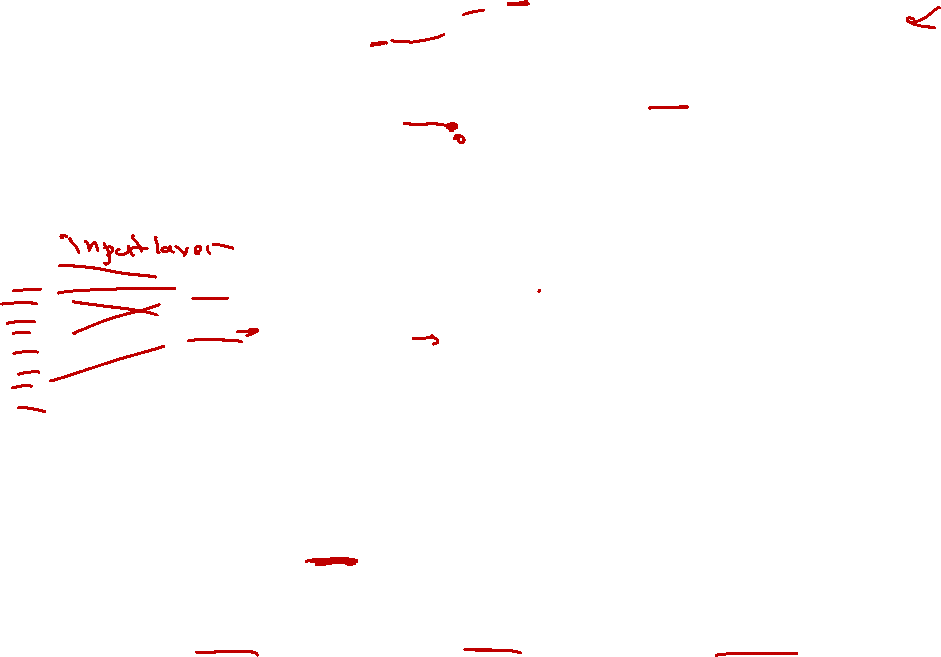 Input layer